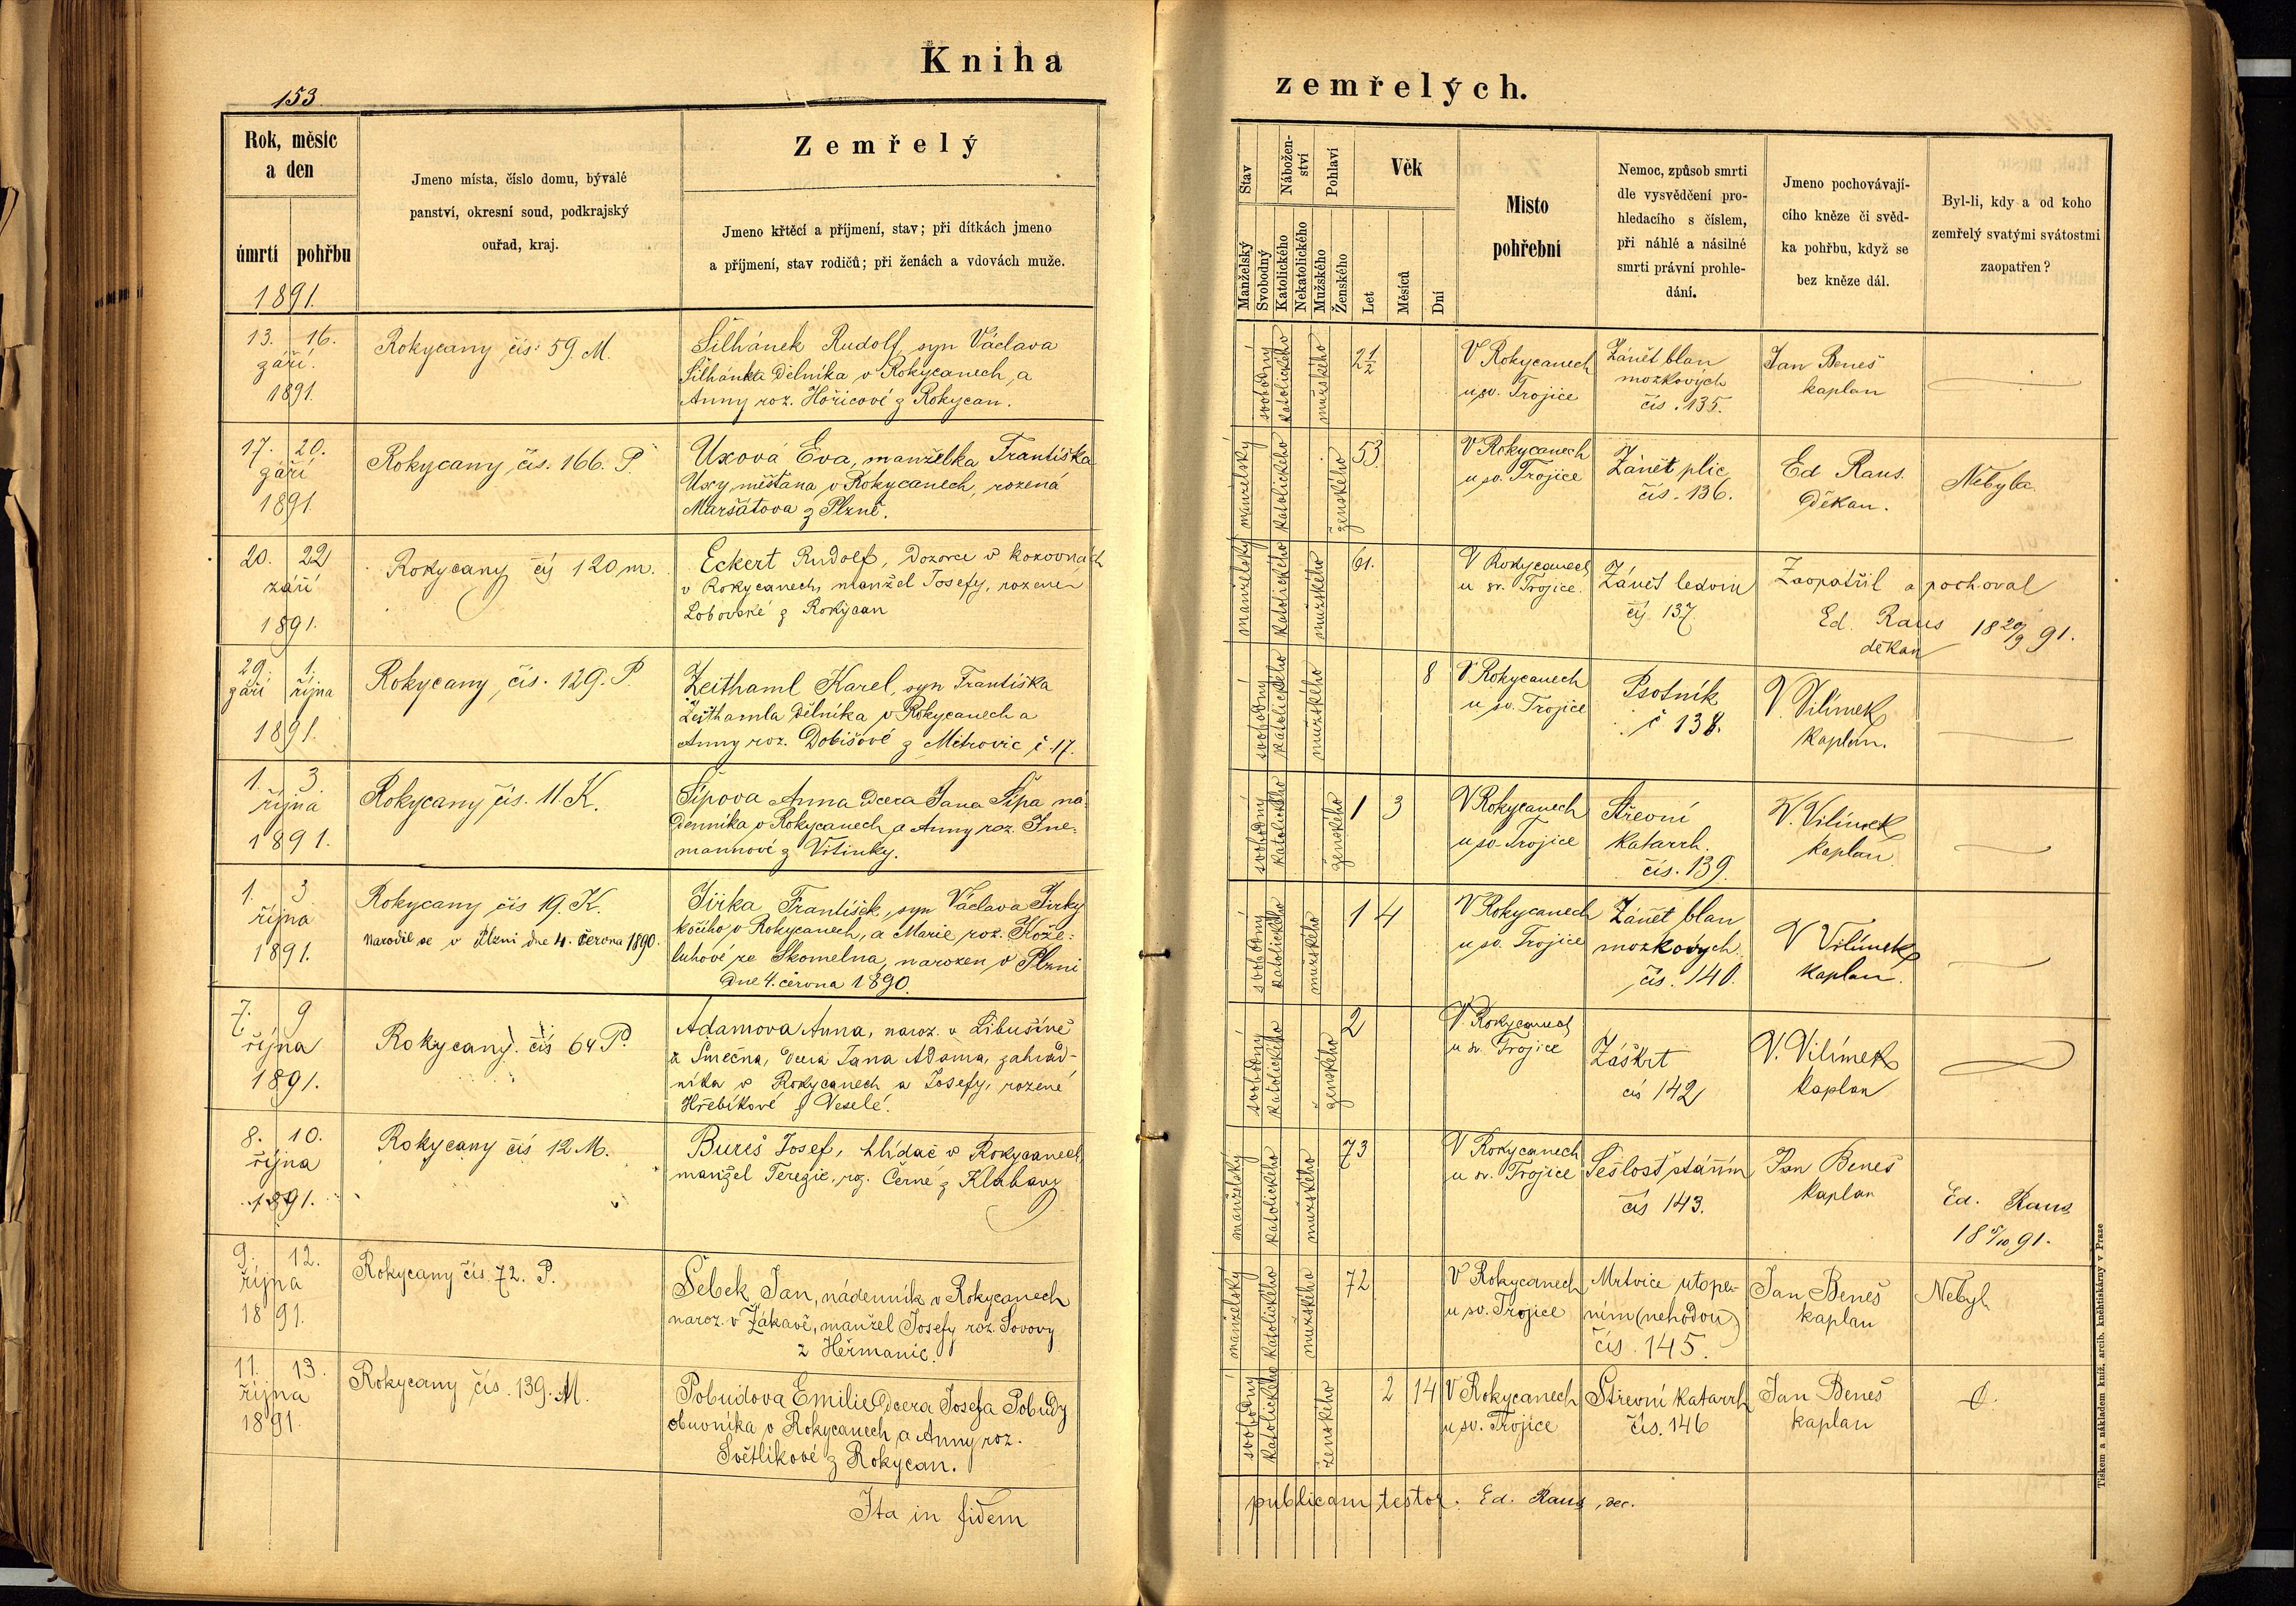 Kniha
153
Rok, měsíc
a den
úmrtí
pohřbu
1891.
Jmeno místa, číslo domu, bývalé
panství, okresní soud, podkrajský
ouřad, kraj.
Zemřelý
Jmeno křtěcí a příjmení, stav; při dítkách jmeno
a příjmení, stav rodičů; při ženách a vdovách muže.
13. 16.
září.
1891.
Rokycany čís. 59. M.
Šilhánek Rudolf, syn Václava
Šilhánka dělníka v Rokycanech, a
Anny roz. Hořicové z Rokycan.
17. 20.
září
1891.
Rokycany, čís. 166. P.
Uxová Eva, manželka Františka
Uxy, měšťana v Rokycanech, rozená
Maršátova z Plzně.
20. 22
září
1891.
Rokycany čís 120 m.
Eckert Rudolf, dozorce v kovovnách
v Rokycanech, manžel Josefy, rozené
Lobovské z Rokycan
29. 1.
září října
1891.
Rokycany, čís. 129. P
Zeithaml Karel, syn Františka
Zeithamla dělníka v Rokycanech a
Anny roz. Dobišové z Mitrovic č. 17.
1. 3.
října
1891.
Rokycany čís. 11. K.
Šípova Anna dcera Jana Šípa ná-
denníka v Rokycanech, a Anny roz. Jne-
mannové z Vitinky.
1. 3
října
1891.
Rokycany čís 19. K.
Narodil se v Plzni dne 4. června 1890.
Jirka František, syn Václava Jirky
kočího v Rokycanech, a Marie roz. Kože-
luhové ze Skomelna, narozen v Plzni
dne 4. června 1890.
7. 9
října
1891.
Rokycany čís 64 P.
Adamova Anna, naroz. v Libušíně
u Smečna, dcera Jana Adama, zahrad-
níka v Rokycanech a Josefy, rozené
Hřebíkové z Veselé.
8. 10.
října
1891.
Rokycany čís 12 M.
Bureš Josef, hlídač v Rokycanech,
manžel Terezie, roz. Černé z Klabavy
9. 12.
října
1891.
Rokycany čís. 72. P.
Šebek Jan, nádenník v Rokycanech
naroz. v Žákavě, manžel Josefy roz. Sovovy
z Heřmanic.
11. 13.
října
1891.
Rokycany čís. 139. M.
Pobudova Emilie dcera Josefa Pobudy
obuvníka v Rokycanech, a Anny roz.
Světlíkové z Rokycan.
Ita in fidem
zemřelých.
Stav
Nábožen-
ství
Pohlaví
Věk
Manželský
Svobodný
Katolického
Nekatolického
Mužského
Ženského
Let
Měsíců
Dní
Místo
pohřební
Nemoc, způsob smrti
dle vysvědčení pro-
hledacího s číslem,
při náhlé a násilné
smrti právní prohle-
dání.
Jmeno pochovávají-
cího kněze či svěd-
ka pohřbu, když se
bez kněze dál.
Byl-li, kdy a od koho
zemřelý svatými svátostmi
zaopatřen?
svobodný
katolického
mužského
2 1/2
V Rokycanech
u sv. Trojice
Zánět blan
mozkových
čís. 135.
Jan Beneš
kaplan
manželský
katolického
ženského
53
V Rokycanech
u sv. Trojice
Zánět plic
čís. 136.
Ed Raus.
děkan.
Nebyla.
manželský
katolického
mužského
61.
V Rokycanech
u sv. Trojice.
Zánět ledvin
čís. 137.
Zaopatřil a pochoval
Ed. Raus 18 20/9 91.
děkan
svobodný
katolického
mužského
8
V Rokycanech
u sv. Trojice
Psotník
č 138.
V. Vilímek
kaplan.
svobodný
katolického
ženského
1 3
V Rokycanech
u sv. Trojice
Střevní
katarrh.
čís. 139.
V. Vilímek
kaplan
svobodný
katolického
mužského
1 4
V Rokycanech
u sv. Trojice
Zánět blan
mozkových.
čís. 140.
V Vilímek
kaplan.
svobodný
katolického
ženského
2
V. Rokycanech
u sv. Trojice
Záškrt
čís 142
V. Vilímek
kaplan
manželský
katolického
mužského
73
V Rokycanech
u sv. Trojice
Sešlosť stářím
čís 143.
Jan Beneš
kaplan
Ed. Raus
18 5/10 91.
manželský
katolického
mužského
72
V Rokycanech
u sv. Trojice
Mrtvice utope-
ním (nehodou)
čís. 145.
Jan Beneš
kaplan
Nebyl
svobodný
katolického
ženského
2 14
V Rokycanech
u sv. Trojice
Střevní katarrh
čís. 146
Jan Beneš
kaplan
publicam testor. Ed. Raus, dec.
Tiskem a nákladem kníž. arcib. knihtiskárny v Praze